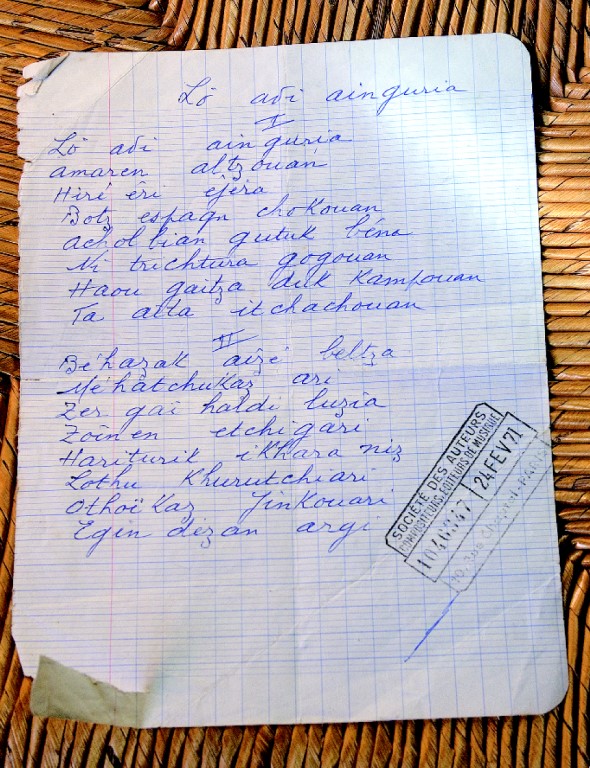 Lo adi ainguria
I
Lo adi ainguria
amaren altzouan
Hiri êri ejéra
Botz espagn chokouan
achol bian gutuk béna
Ni trichtura gogouan
Haou gaitza duk Kampouan
Ta aita itchachouan
II
Be'hazak aizé beltza
Mé'hatchukaz ari
Zer gaï haldi luzia
Zoïnen etchigari
Hariturik ikhara niz
Lothu Khurutchiari
Othoïkaz Jinkouari
Egin dezan argi
SOCIÉTÉ DES AUTEURS
COMPOSITEURS, ÉDITEURS DE MUSIQUE
24 FEV 71